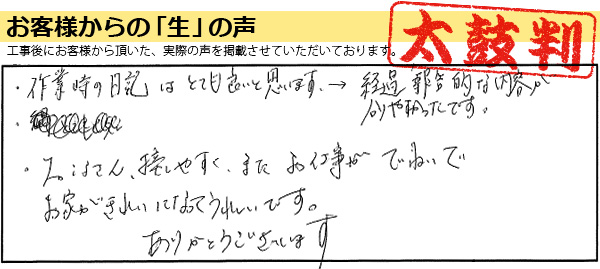 お客様からの「生」の声
工事後にお客様から頂いた、実際の声を掲載させていただいております。
太鼓判
・作業時の日記はとても良いと思います。→ 経過報告的な内容が
分りやすかったです。
・
・ さん、接しやすく、また お仕事が ていねいで
お家がきれいになってうれしいです。
ありがとうございます